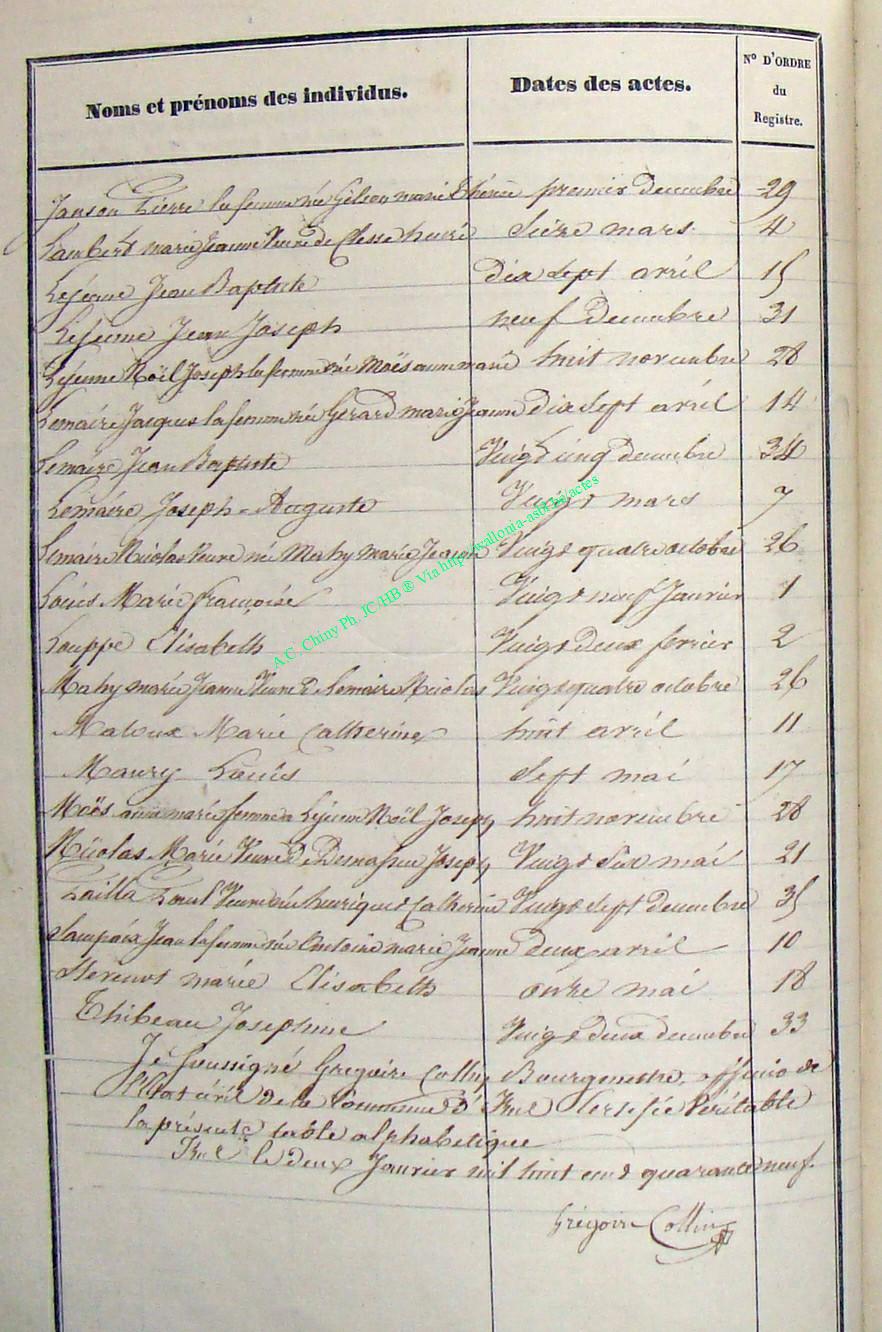 Noms et prénoms des individus. Dates des actes. N° D'ORDRE du Registre.
Janson Pierre la femme née Gilson marie Thérèse premier decembre 29
Lambert marie Jeanne Veuve de Clesse henri seize mars 4
Lejeune Jean Baptiste dix sept avril 15
Lejeune Jean Joseph neuf decembre 31
Lejeune Noël Joseph la femme née Moës anne marie huit novembre 28
Lemaire Jacques la femme née Gerard marie Jeanne dix sept avril 14
Lemaire Jean Baptiste Vingt cinq decembre 34
Lemaire Joseph-Auguste Vingt mars 7
Lemaire Nicolas Veuve née Mahy marie Jeanne Vingt quatre octobre 26
Louis Marie françoise Vingt neuf Janvier 1
Louppe Elisabeth Vingt deux fevrier 2
Mahy marie Jeanne Veuve de Lemaire Nicolas Vingt quatre octobre 26
Maloux Marie Catherine huit avril 11
Maury Louis sept mai 17
Moës anne marie femme a Lejeune Noël Joseph huit novembre 28
Nicolas Marie Veuve De Joseph Vingt six mai 21
Veuve née henriquet Catherine Vingt sept decembre 35
Jean la femme née Antoine marie Jeanne deux avril 10
marie Elisabeth onze mai 18
Thibeau Josephine Vingt deux decembre 33
Je soussigné Gregoire Collin, Bourgmestre, officier de
l'Etat civil de la Commune d' Certifie Véritable
la présente table alphabetique
le deux Janvier mil huit cent quarante neuf.
Grégoire Collin
A.C. Chiny Ph. JC/HB ® Via http://wallonia-asbl.be/actes